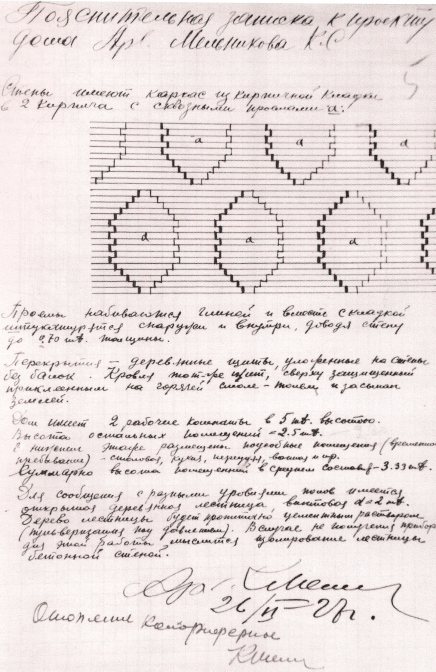 Пояснительная записка к проекту
дома Арх. Мельникова К.С
Стены имеют каркас из кирпичной кладки
в 2 кирпича с сквозными проемами а:
а а а
а а а
Проемы набиваются глиной и вместе с кладкой
штукатурятся снаружи и внутри, доводя стену
до 0,70 mt. толщины.
Перекрытия – деревянные щиты, уложенные на стены
без балок. Кровля тот-же щит, сверху защищенный
приклеенным на горячей смоле-толем и засыпан
землей.
Дом имеет 2 рабочие комнаты в 5 mt. высотою.
Высота остальных помещений = 2.5 mt.
В нижнем этаже размещены подсобные помещения (временного
пребывания) - столовая, кухня, передняя, ванна и пр.
высота помещений в среднем составит - 3.33 mt.
Для сообщения с разными уровнями полов имеется
открытая деревянная лестница винтовая d = 2 mt.
Дерево лестницы будет пропитано цементным раствором
(под давлением). В случае не получения прибора
для этой работы мыслится изолирование лестницы
бетонной стеной.
Арх. КМель
26/VI – 27 г.
Отопление Калориферное
КМель